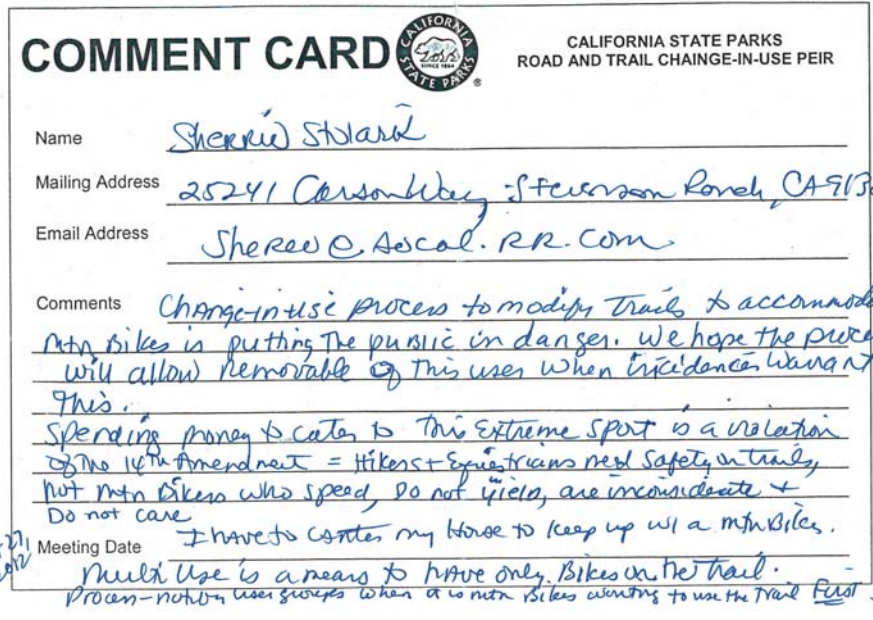 COMMENT CARD
CALIFORNIA STATE PARKS
SINCE 1864
CALIFORNIA STATE PARKS
ROAD AND TRAIL CHAINGE-IN-USE PEIR
Name Sherrie Stolarik
Mailing Address 25241 Carson Way, Stevenson Ranch, CA 913
Email Address Sheree@socal.RR.com
Comments Change-in-use process to modify Trails to accommod
Mtn Bikes is putting The public in danger. We hope the proce
will allow Removable of This user when incidences Warrant
This.
Spending money to cater to This Extreme Sport is a violation
of The 14th Amendment = Hikers + Equestrians need Safety on trails,
not mtn Bikers who speed, Do not yield, are inconsiderate +
Do not care
I have to canter my Horse to keep up w/ a mtn Biker.
Meeting Date 27, 2012
Multi Use is a means to have only Bikes on the Trail.
Process - not by user groups when it is mtn Bikes wanting to use the Trail First.